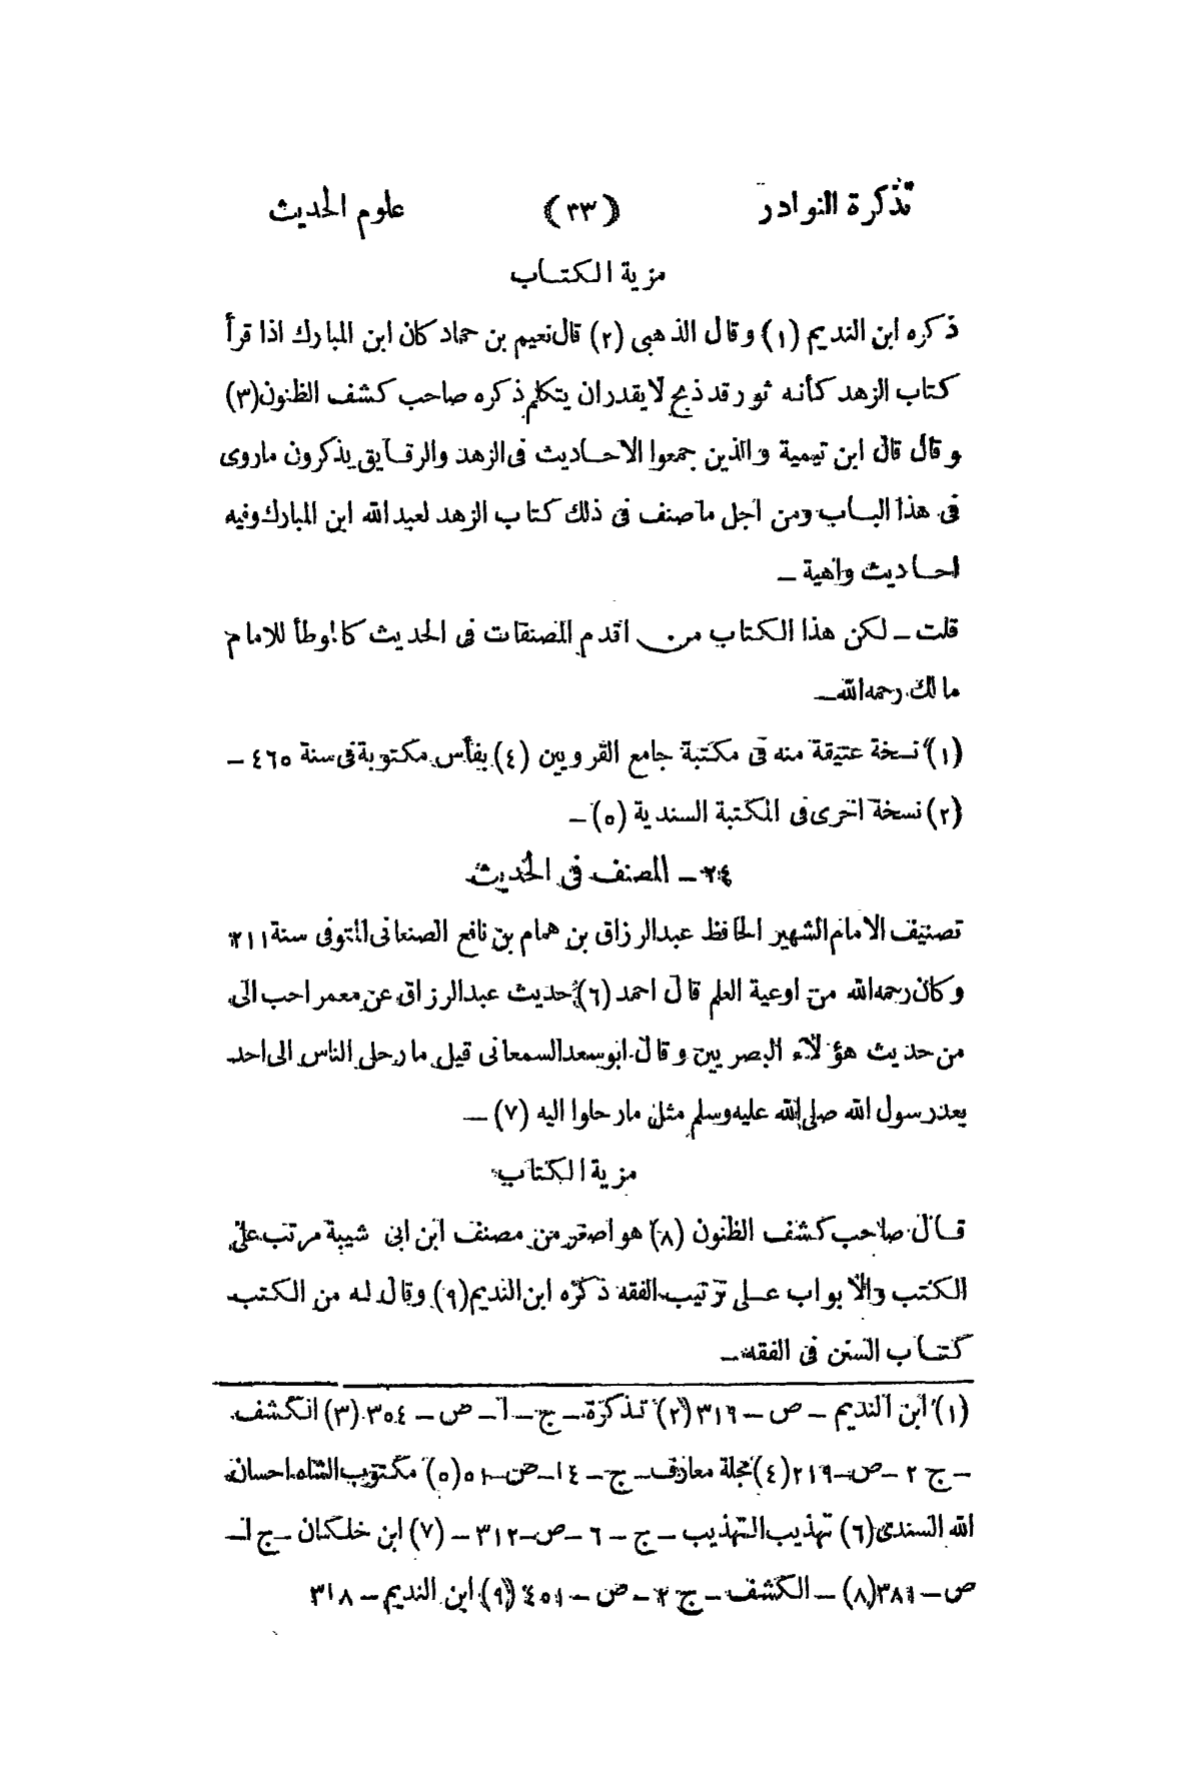 تذكرة النوادر (٣٣) علوم الحديث
مزية الكتاب
ذكره ابن النديم (١) وقال الذهبى (٢) قال نعيم بن حماد كان ابن المبارك اذا قرأ
كتاب الزهد كأنه ثور قد ذبح لا يقدر ان يتكلم ذكره صاحب كشف الظنون (٣)
وقال قال ابن تيمية والذين جمعوا الاحاديث فى الزهد والرقايق يذكرون ماروى
فى هذا الباب ومن اجل ما صنف فى ذلك كتاب الزهد لعبد الله ابن المبارك وفيه
احاديث واهية ــ
قلت ــ لكن هذا الكتاب من اقدم المصنفات فى الحديث كالموطأ للامام
مالك رحمه الله ــ
(١) نسخة عتيقة منه فى مكتبة جامع القرويين (٤) بفاس مكتوبة فى سنة ٤٦٥ ــ
(٢) نسخة اخرى فى المكتبة السندية (٥) ــ
٢٤ ــ المصنف فى الحديث
تصنيف الامام الشهير الحافظ عبد الرزاق بن همام بن نافع الصنعانى المتوفى سنة ٢١١
وكان رحمه الله من اوعية العلم قال احمد (٦) حديث عبد الرزاق عن معمر احب الى
من حديث هؤلآء البصريين وقال ابو سعد السمعانى قيل ما رحل الناس الى احد
بعد رسول الله صلى الله عليه وسلم مثل مارحلوا اليه (٧) ــ
مزية الكتاب
قال صاحب كشف الظنون (٨) هو اصغر من مصنف ابن ابى شيبة مرتب على
الكتب والابواب على ترتيب الفقه ذكره ابن النديم (٩) وقال له من الكتب
كتاب السنن فى الفقه ــ
(١) ابن النديم ــ ص ــ ٣١٩ (٢) تذكرة ــ ج ــ ١ ــ ص ــ ٣٥٤ (٣) الكشف
ــ ج ٢ ــ ص ــ ٢١٩ (٤) مجلة معارف ــ ج ــ ١٤ ــ ص ــ ٥١ (٥) مكتوب الشاه احسان
الله السندى (٦) تهذيب التهذيب ــ ج ــ ٦ ــ ص ــ ٣١٢ ــ (٧) ابن خلكان ــ ج ١ ــ
ص ــ ٣٨١ (٨) ــ الكشف ــ ج ٢ ــ ص ــ ٤٥١ (٩) ابن النديم ــ ٣١٨